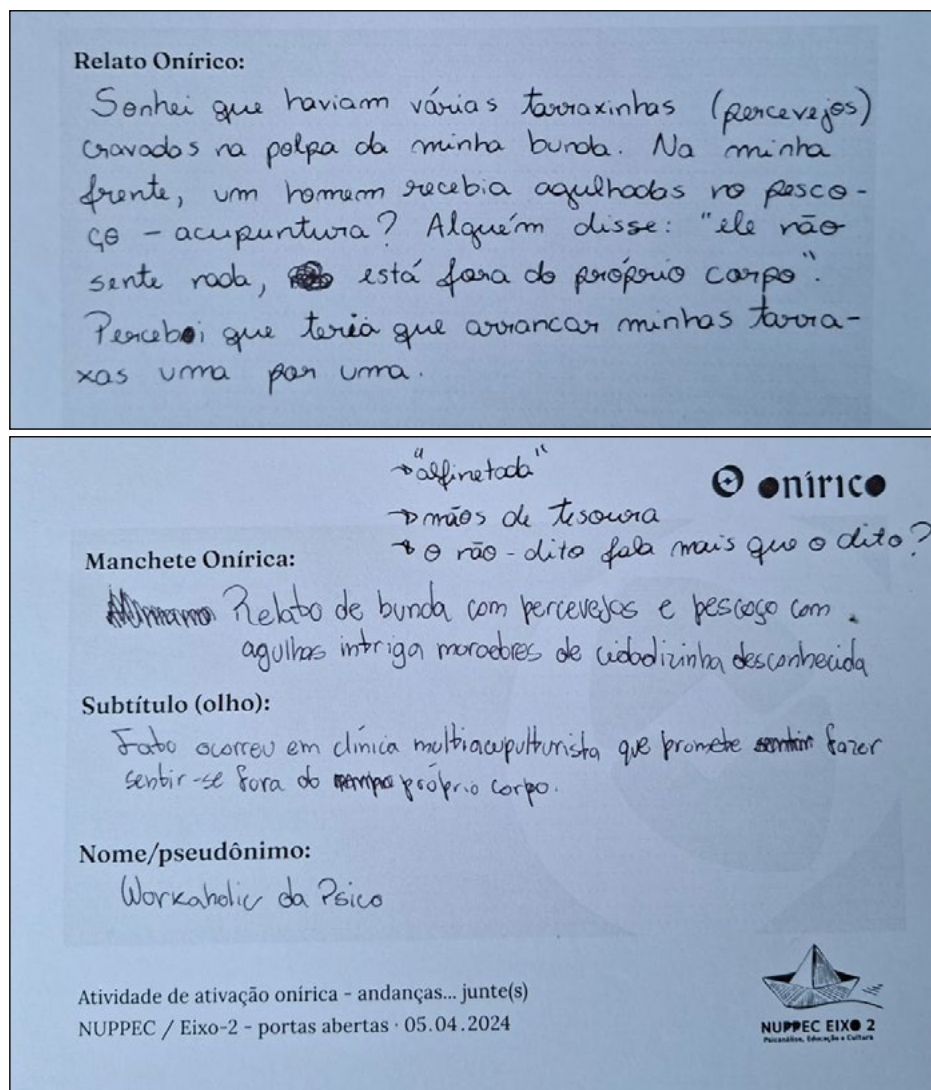 Relato Onírico:
Sonhei que haviam várias tarraxinhas (percevejos)
cravados na polpa da minha bunda. Na minha
frente, um homem recebia agulhadas no pesco-
ço - acupuntura? Alguém disse: "ele não
sente nada, está fora do próprio corpo".
Percebi que teria que arrancar minhas tarra-
xas uma por uma.
→ "alfinetada"
→ mãos de tesoura
→ O não-dito fala mais que o dito?
onírico
Manchete Onírica:
Relato de bunda com percevejos e pescoço com
agulhas intriga moradores de cidadizinha desconhecida
Subtítulo (olho):
Fato ocorreu em clínica multiacupulturista que promete fazer
sentir-se fora do próprio corpo.
Nome/pseudônimo:
Workaholic da Psico
Atividade de ativação onírica - andanças... junte(s)
NUPPEC / Eixo-2 - portas abertas · 05.04.2024
NUPPEC EIXO 2
Psicanálise, Educação e Cultura